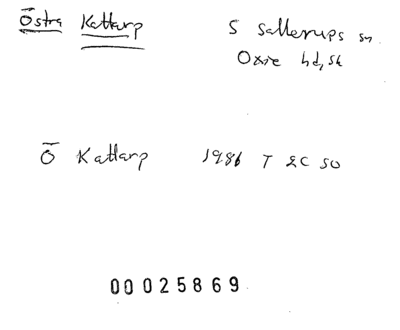 Östra Kattarp
S Sallerups sn
Oxie hd, Sk
Ö Kattarp 1986 T 2C SO
00025869